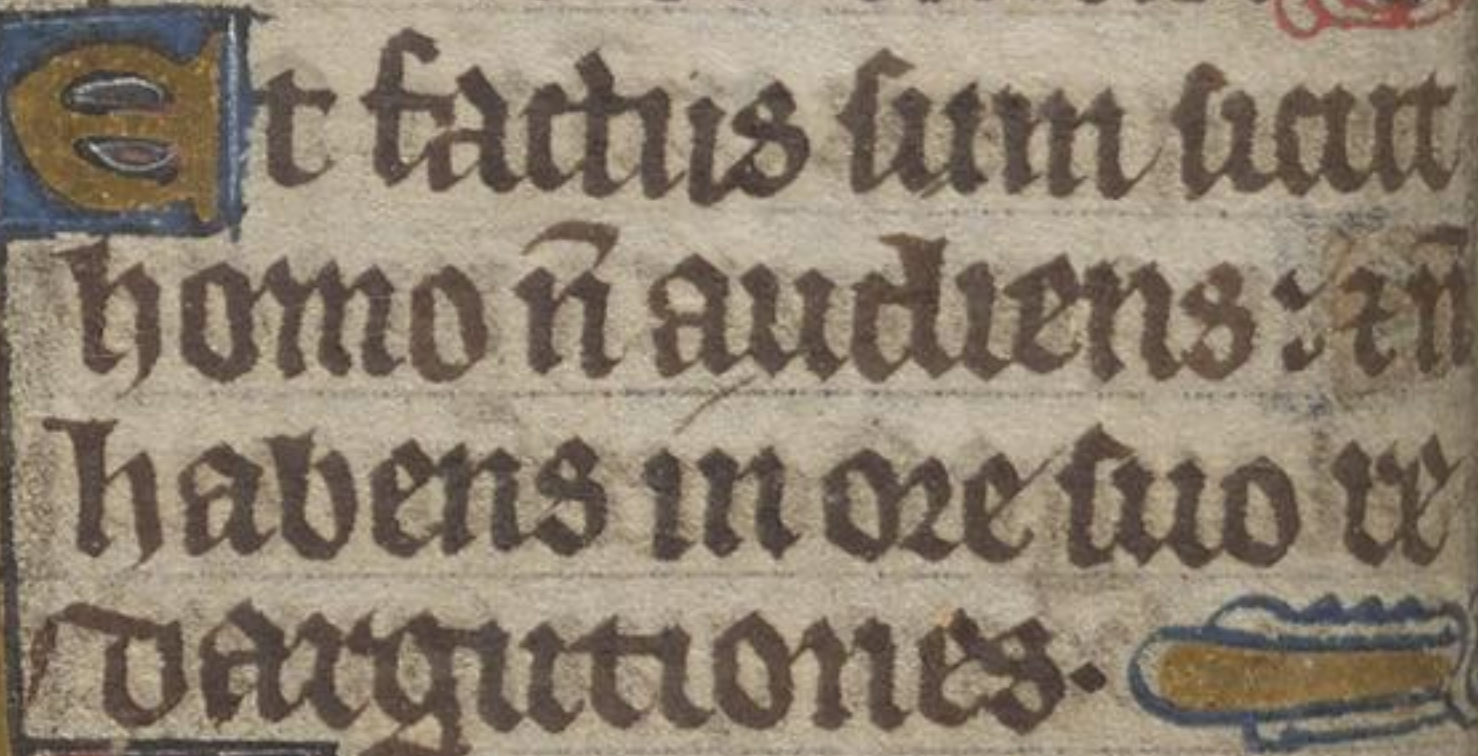 Et factus sum sicut
homo n̄ audiens : ⁊ n̄
habens in ore suo re
dargutiones.